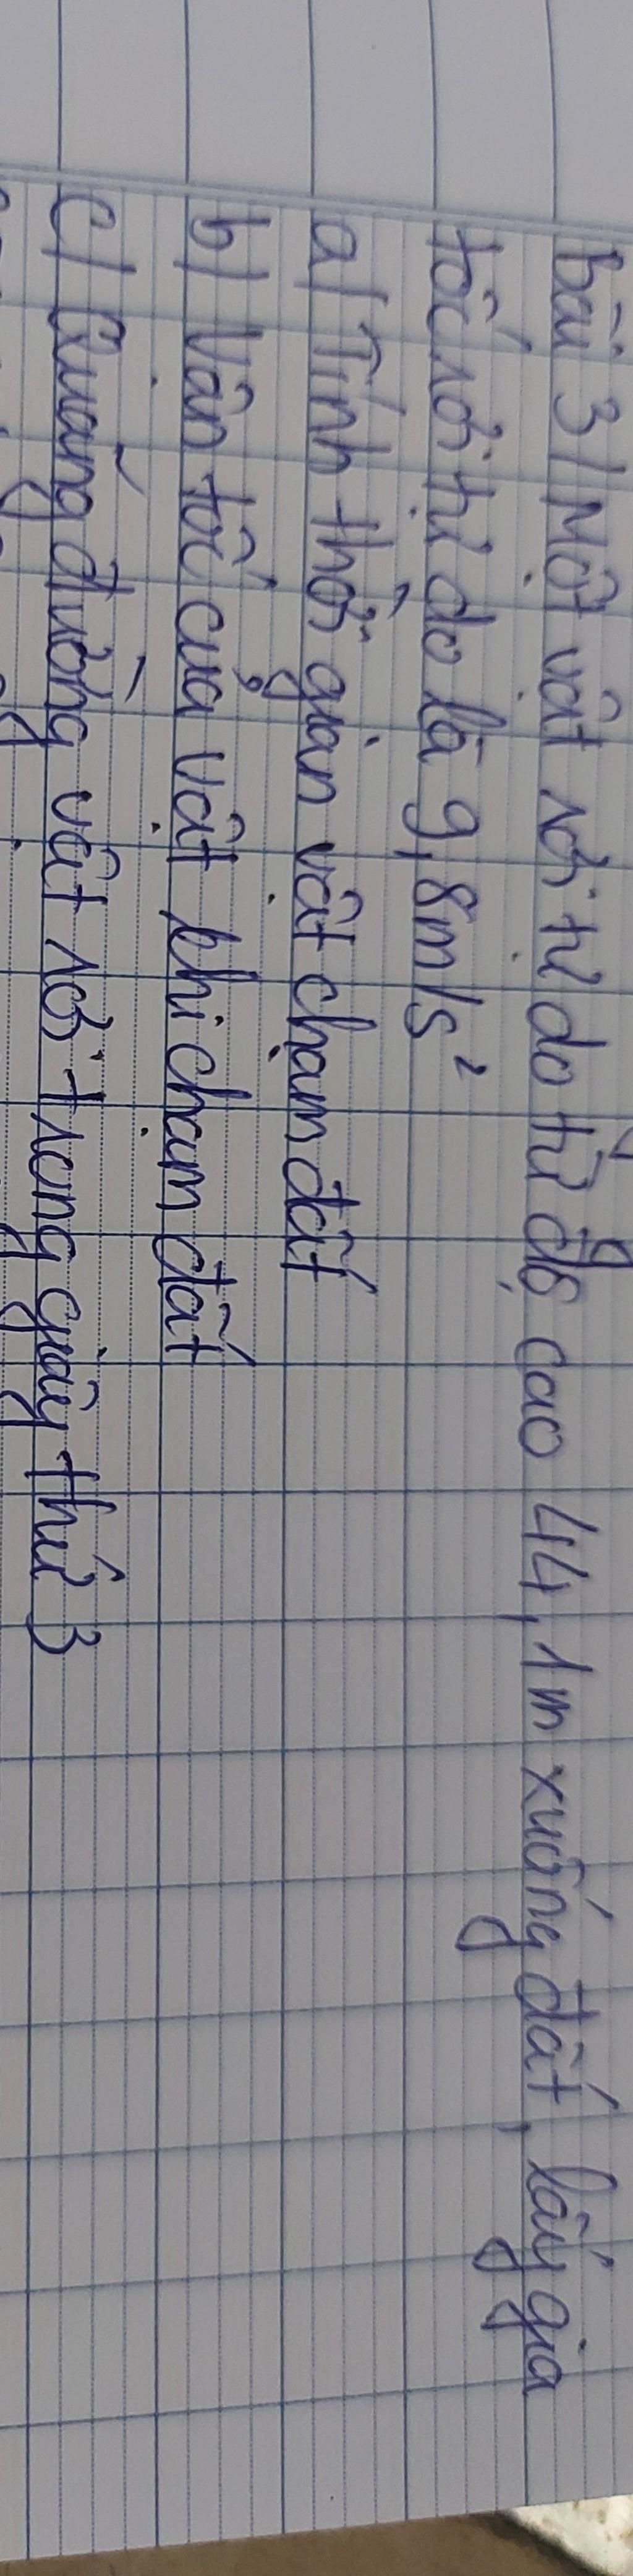 bài 3/ Một vật rơi tự do từ độ cao 44,1m xuống đất, lấy gia
tốc rơi tự do là 9,8m/s²
a/ Tính thời gian vật chạm đất
b/ Vận tốc của vật khi chạm đất
c/ Quãng đường vật rơi trong giây thứ 3